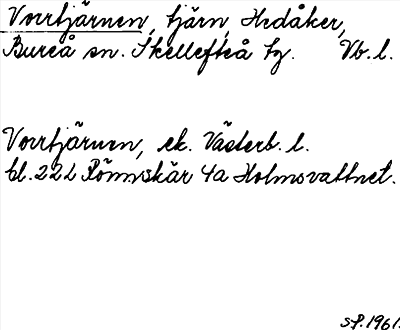 Vorrtjärnen, tjärn, Hedåker,
Bureå sn. Skellefteå tg. Vb. l.
Vorrtjärnen, ek. Västerb. l.
bl. 22L Rönnskär 4a Holmsvattnet.
S.P. 1961.